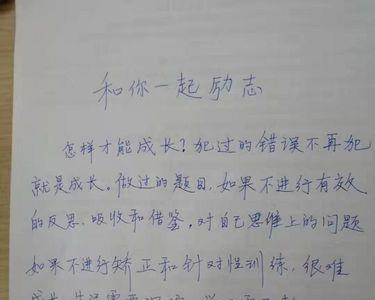 和你一起励志
怎样才能成长?犯过的错误不再犯
就是成长。做过的题目,如果不进行有效
的反思、吸收和借鉴,对自己思维上的问题
如果不进行矫正和针对性训练,很难